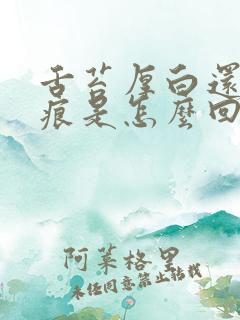 舌苔厚白還
痕是怎麼回
阿萊格里
未经同意禁止转载